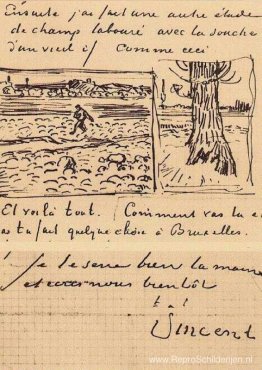 Ensuite j'ai fait une autre étude
de champs labouré avec la souche
d'un vieil if Comme ceci
Et voilà tout. Comment vas tu et
as tu fait quelque chose à Bruxelles.
Je te serre bien la main
et écris nous bientôt
t. à
Vincent
www.ReproSchilderijen.nl